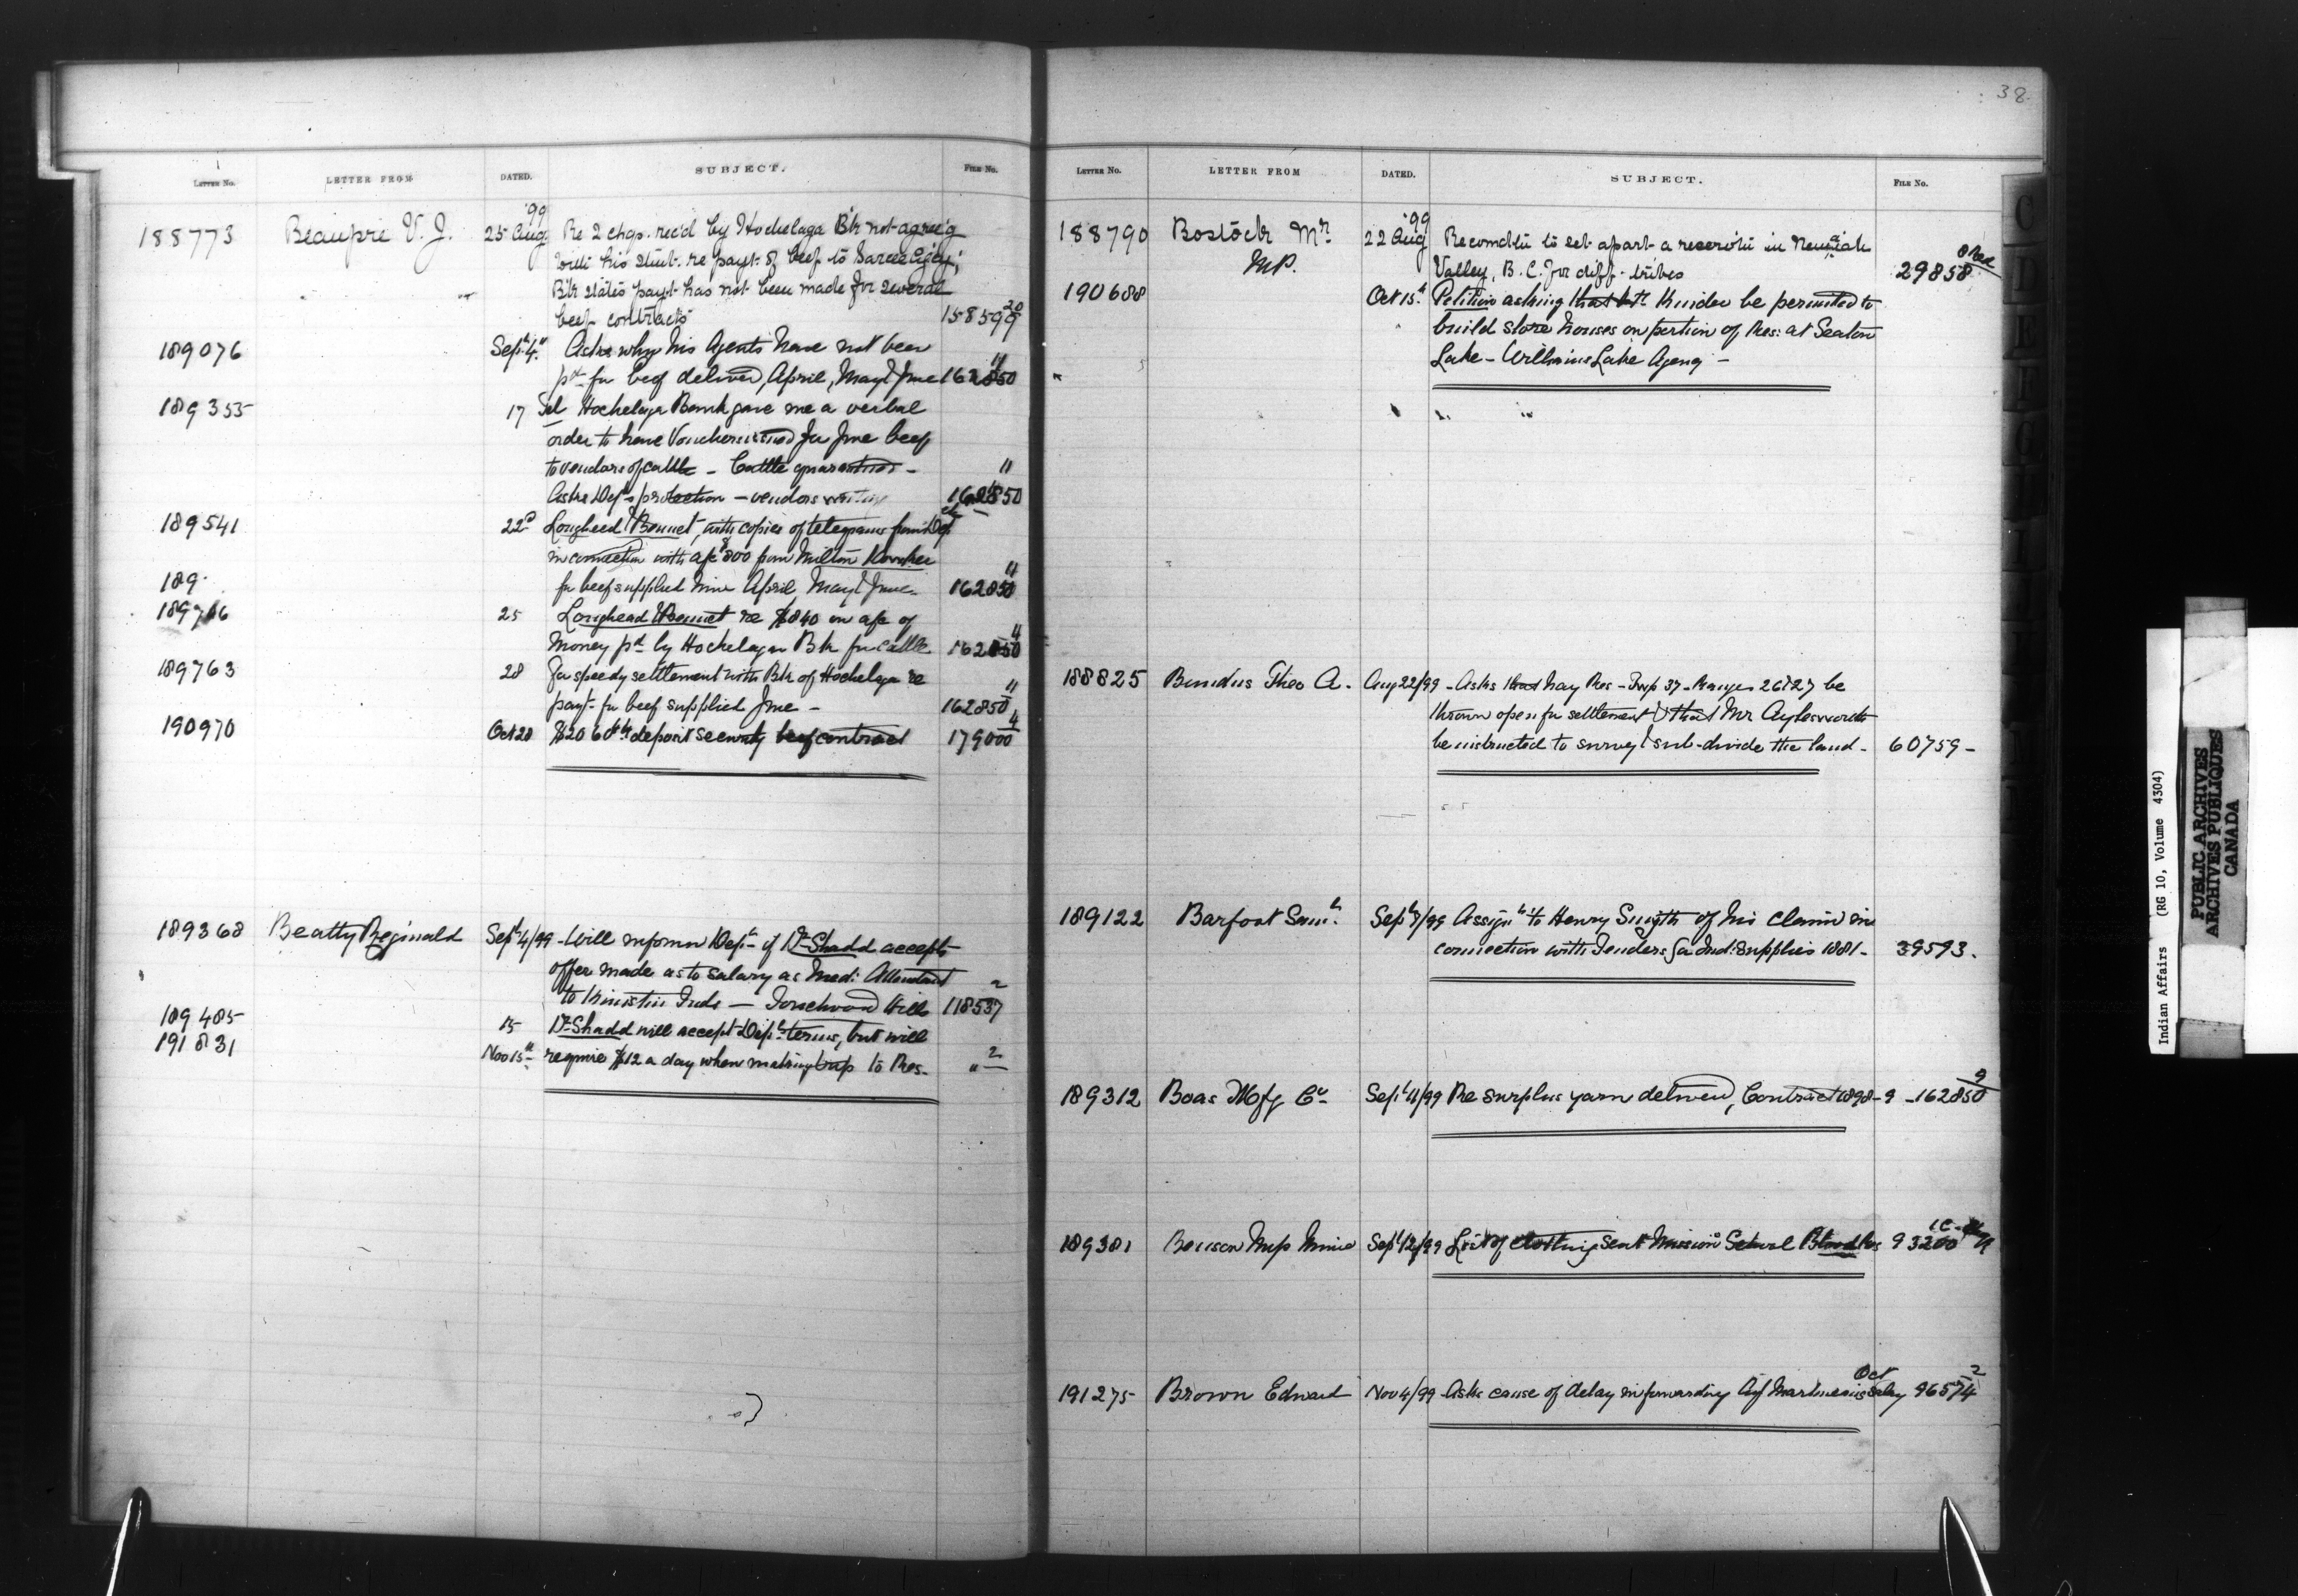 38
LETTER No. LETTER FROM DATED. SUBJECT. FILE No.
'99
188773 Beaupre V. J. 25 Aug. Re 2 chqs. rec'd by Hochelaga B'k not agree'g
with his stmt. re payt. of beef to Sarcee Agcy;
B'k states payt has not been made for several
beef contracts 158599 20
189076 Sept 4" Asks why his Agents have not been
pd for beef delivered, April, May & June 162850 11
189355 17 Sel Hochelaga Bank gave me a verbal
order to have Vouchers issued for June beef
to vendors of cattle - Cattle guaranteed -
Asks Dept's protection - vendors 162850 11
189541 22d Lougheed & Bennet, with copies of telegrams from Dept
in connection with a/c $800 from Milton
for beef supplied mine April, May & June 162850 11
189
189746 25 Loughead & Bennet re $840 on a/c of
Money pd by Hochelaga Bk for cattle 162850
189763 28 For speedy settlement with Bk of Hochelaga re
payt for beef supplied June - 162850 11
190970 Oct 28 deposit security beef contract 179000 4
189368 Beatty Reginald Sept 4/99 - Will inform Dept if Dr Shadd accepts
offer made as to salary as Med: Attendant
to Kinistin Inds - Touchwood Hills 118537 2
189485 15 Dr Shadd will accept Dept terms, but will
191831 Nov 15th require $12 a day when making trip to Res. " 2
LETTER No. LETTER FROM DATED. SUBJECT. FILE No.
'99
188790 Bostock Mr. 22 Aug Recomdtn to set apart a reserv'tn in
M.P. Valley, B.C. for diff. tribes 29858 8 Red
190688 Oct 15th Petition asking that be permitted to
build store houses on portion of Res: at Seaton
Lake - Williams Lake Agency -
188825 Theo A. Aug 22/99 - Asks that hay Res - Twp 37 - Ranges 26 & 27 be
thrown open for settlement & that Mr Aylesworth
be instructed to survey & sub-divide the land - 60759 -
189122 Barfoot Saml. Sept 8/99 Assignt to Henry Smyth of his claim in
connection with Tenders for Ind: supplies 1881 - 39593.
189312 Boas Mfg Co Sept 11/99 Re surplus yarn delivered, Contract 1898-9 - 162850 9
189381 Benson Sept 12/99 List of clothing sent Mission School Blood Res 93200
191275 Brown Edward Nov 4/99 Asks cause of delay in forwarding Agt Martineau's Oct salary 96574 2
C
D
E
F
G
Indian Affairs (RG 10, Volume 4304)
PUBLIC ARCHIVES
ARCHIVES PUBLIQUES
CANADA